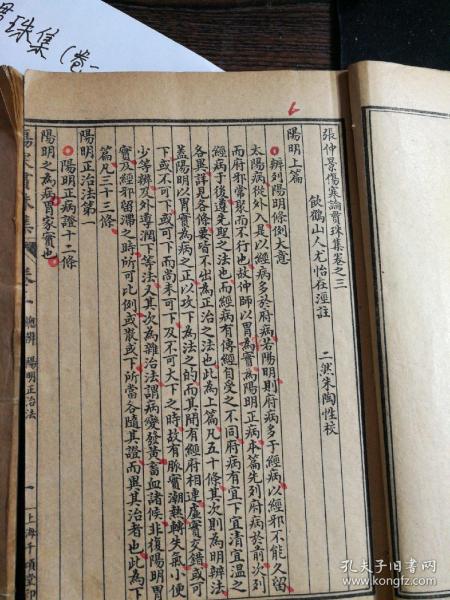 貫珠集(卷一
張仲景傷寒論貫珠集卷之三
飲鶴山人尤怡在涇註 二樊朱陶性校
陽明上篇
辨列陽明條例大意
太陽病從外入是以經病多於府病若陽明則府病多于經病以經邪不能久留
而府邪常聚而不行也故仲師以胃為實為陽明正病本篇先列府病於前次列
經病于後遵先聖之法也而經病有傳經自受之不同府病有宜下宜清宜溫之
各異詳見各條要皆不出為正治之法也此為上篇凡五十條其次則為明辨法
蓋陽明以胃實為病之正以攻下為法之的而其間有經府相連虛實交錯或可
下或不可下或可下而尚未可下及不可大下之時故有脈實潮熱轉失氣小便
少等辨及外導潤下等法又其次為雜治法謂病變發黃畜血諸候非復陽明胃
實及經邪留滯之時所可比例或散或下所當各隨其證而異其治者也此為下
篇凡三十三條
陽明正治法第一
陽明府病證十二條
陽明之為病胃家實也
傷寒貫珠集 卷三 總辨 陽明正治法 一 上海千頃堂印
孔夫子旧书网